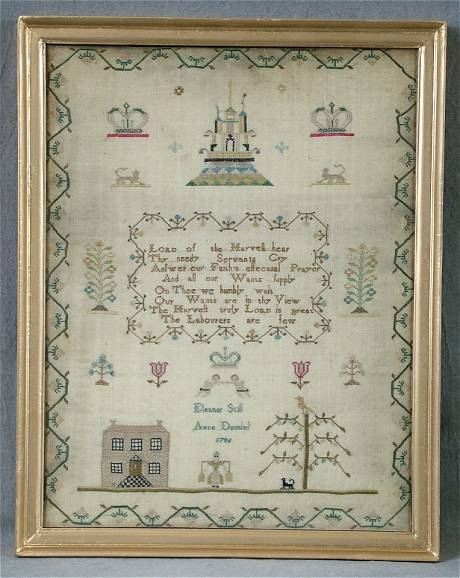 Lord of the Harvest hear
Thy needy Servants Cry
Answer our Faiths effectual Prayer
And all our Wants supply
On Thee we humbly wait
Our Wants are in thy View
The Harvest truly Lord is great
The Labourers are few
Eleanor Still
Anno Domini